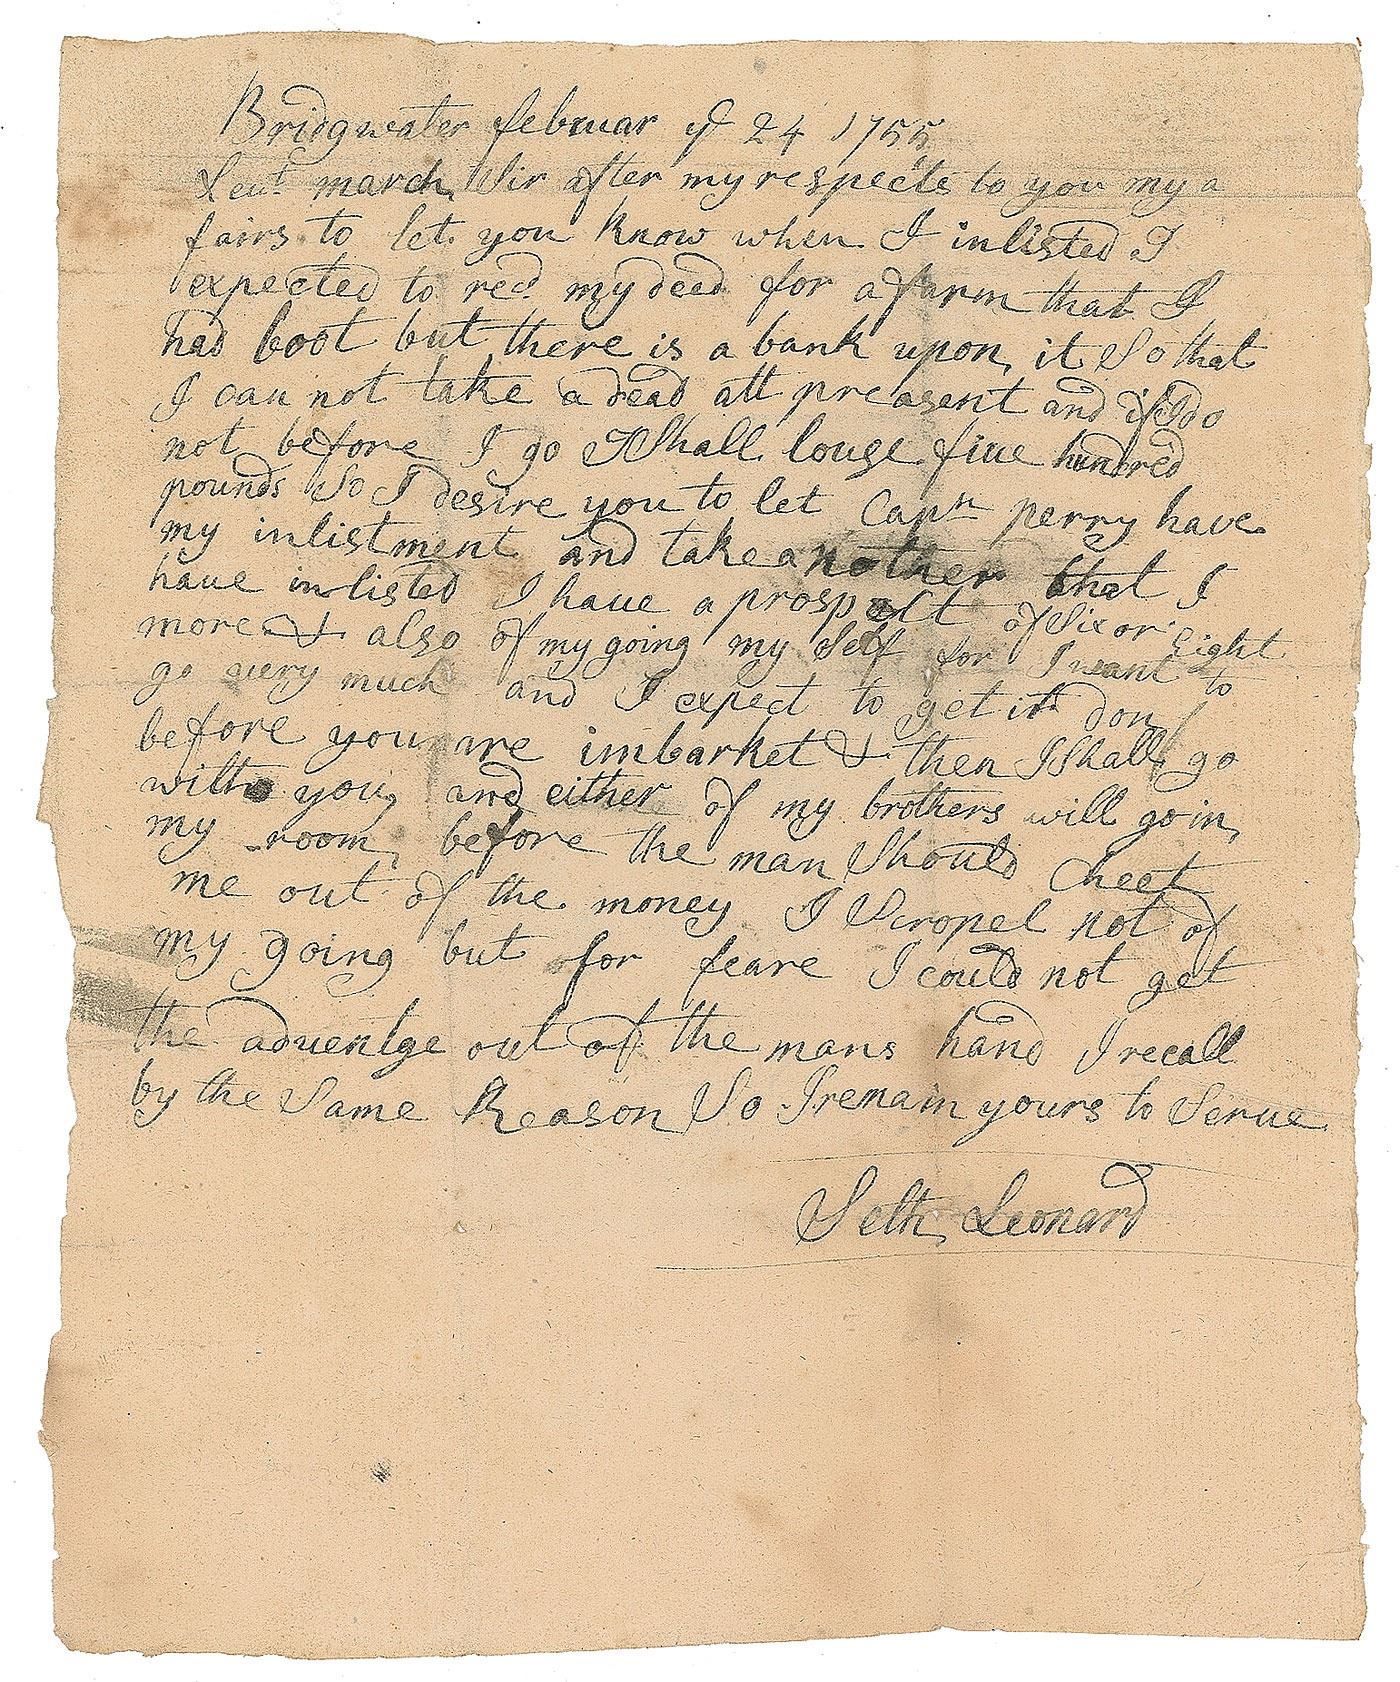 Bridgwater februar ye 24 1755
Leut march Sir after my respects to you my a
fairs to let you know when I inlisted I
expected to recd my deed for a farm that I
had boot but there is a bank upon it So that
I can not take a dead att preasent and if I do
not before I go I Shall louse fiue hundred
pounds So I desire you to let Capn perry have
my inlistment and take another that I
haue inlisted I haue a prospect of Six or Eight
more & also of my going my Self for I want to
go very much and I expect to get it don
before you are imbarket & then I Shall go
with you and either of my brothers will go in
my room before the man Should cheet
me out of the money I Scropel not of
my going but for feare I could not get
the aduentge out of the mans hand I recall
by the Same Reason So I remain yours to Serue
Seth Leonard